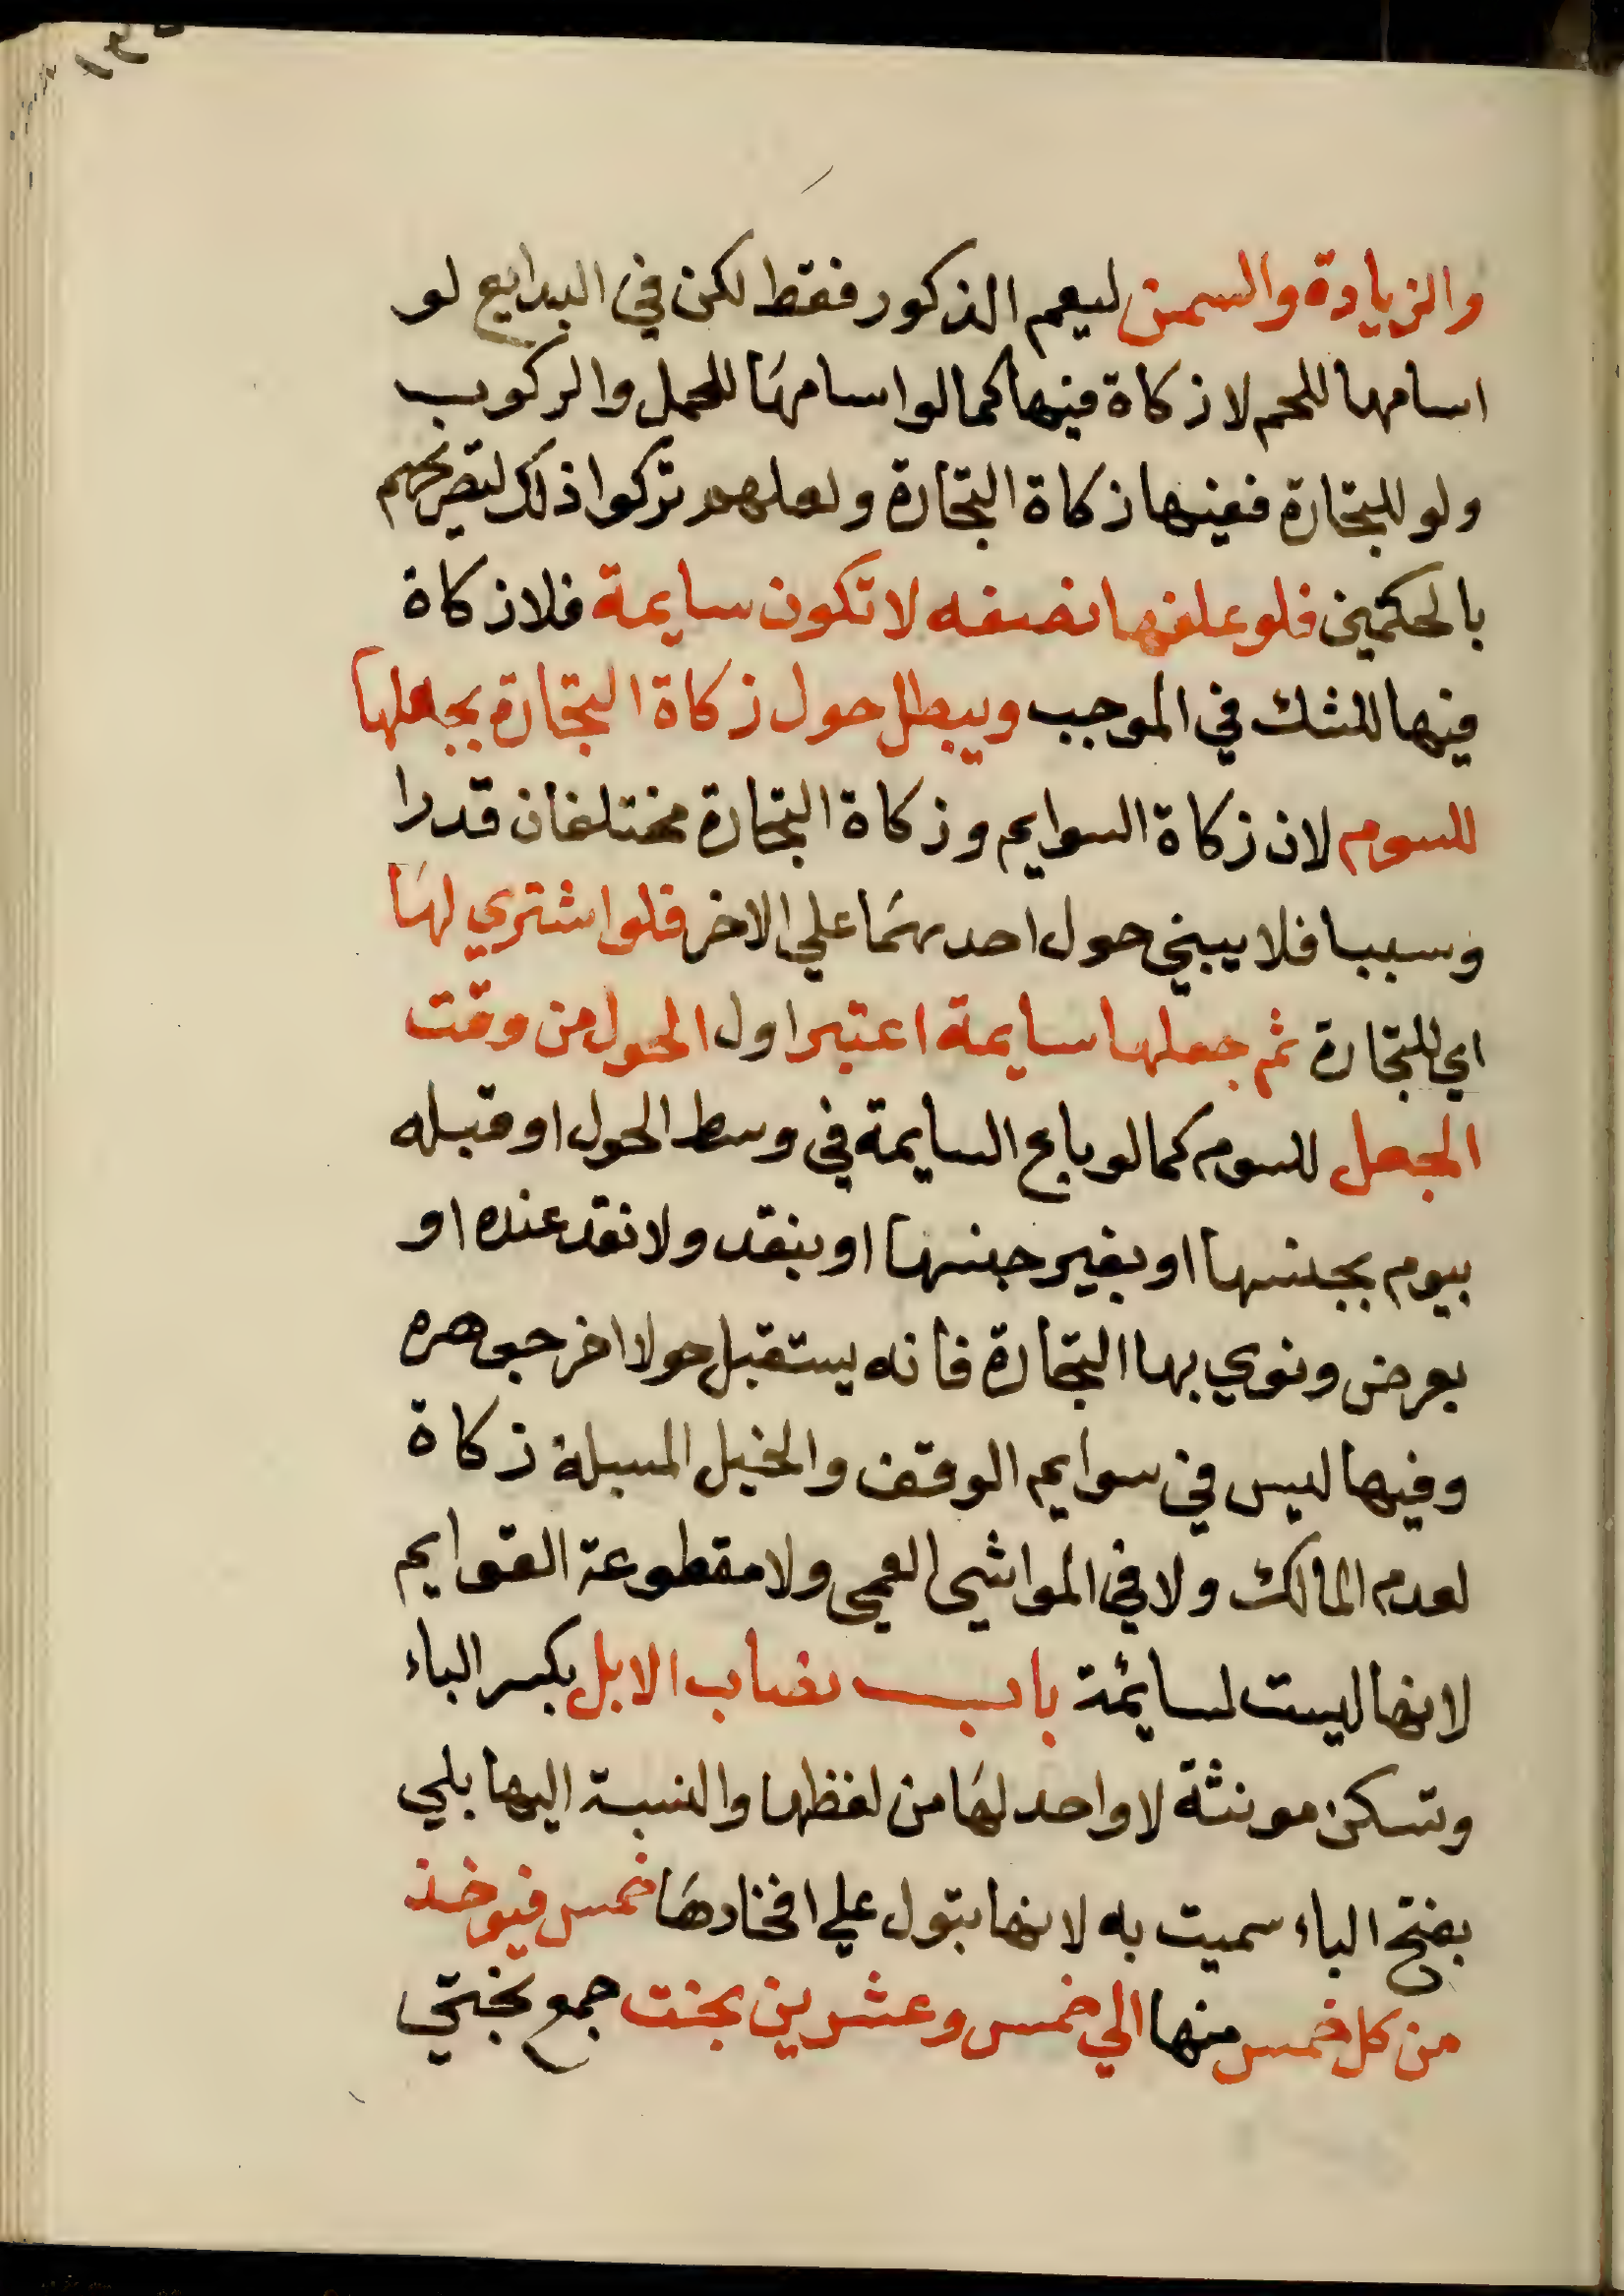 والزيادة والسمن ليعم الذكور فقط لكن في البدايع لو
اسامها للحم لا زكاة فيها كما لو اسامها للحمل والركوب
ولو للتجارة ففيها زكاة التجارة ولعلهم تركوا ذلك لتصريحهم
بالحكمين فلو علفها نصفه لا تكون سايمة فلا زكاة
فيها للشك في الموجب ويبطل حول زكاة التجارة بجعلها
للسوم لان زكاة السوايم وزكاة التجارة مختلفان قدرا
وسببا فلا يبني حول احدهما علي الاخر فلو اشتري لها
اي للتجارة ثم جعلها سايمة اعتبر اول الحول من وقت
الجعل للسوم كما لو باع السايمة في وسط الحول او قبله
بيوم بجنسها او بغير جنسها او بنقد ولا نقد عنده او
بعرض ونوي بها التجارة فانه يستقبل حولا اخر جوهره
وفيها ليس في سوايم الوقف والخيل المسبلة زكاة
لعدم المالك ولا في المواشي العمي ولا مقطوعة القوايم
لانها ليست لسائمة باب نصاب الابل بكسر الباء
وتسكن مونثة لا واحد لها من لفظها والنسبة اليها بلي
بفتح الباء سميت به لانها بتول علي افخادها خمس فيوخذ
من كل خمس منها الي خمس وعشرين بخت جمع بختي